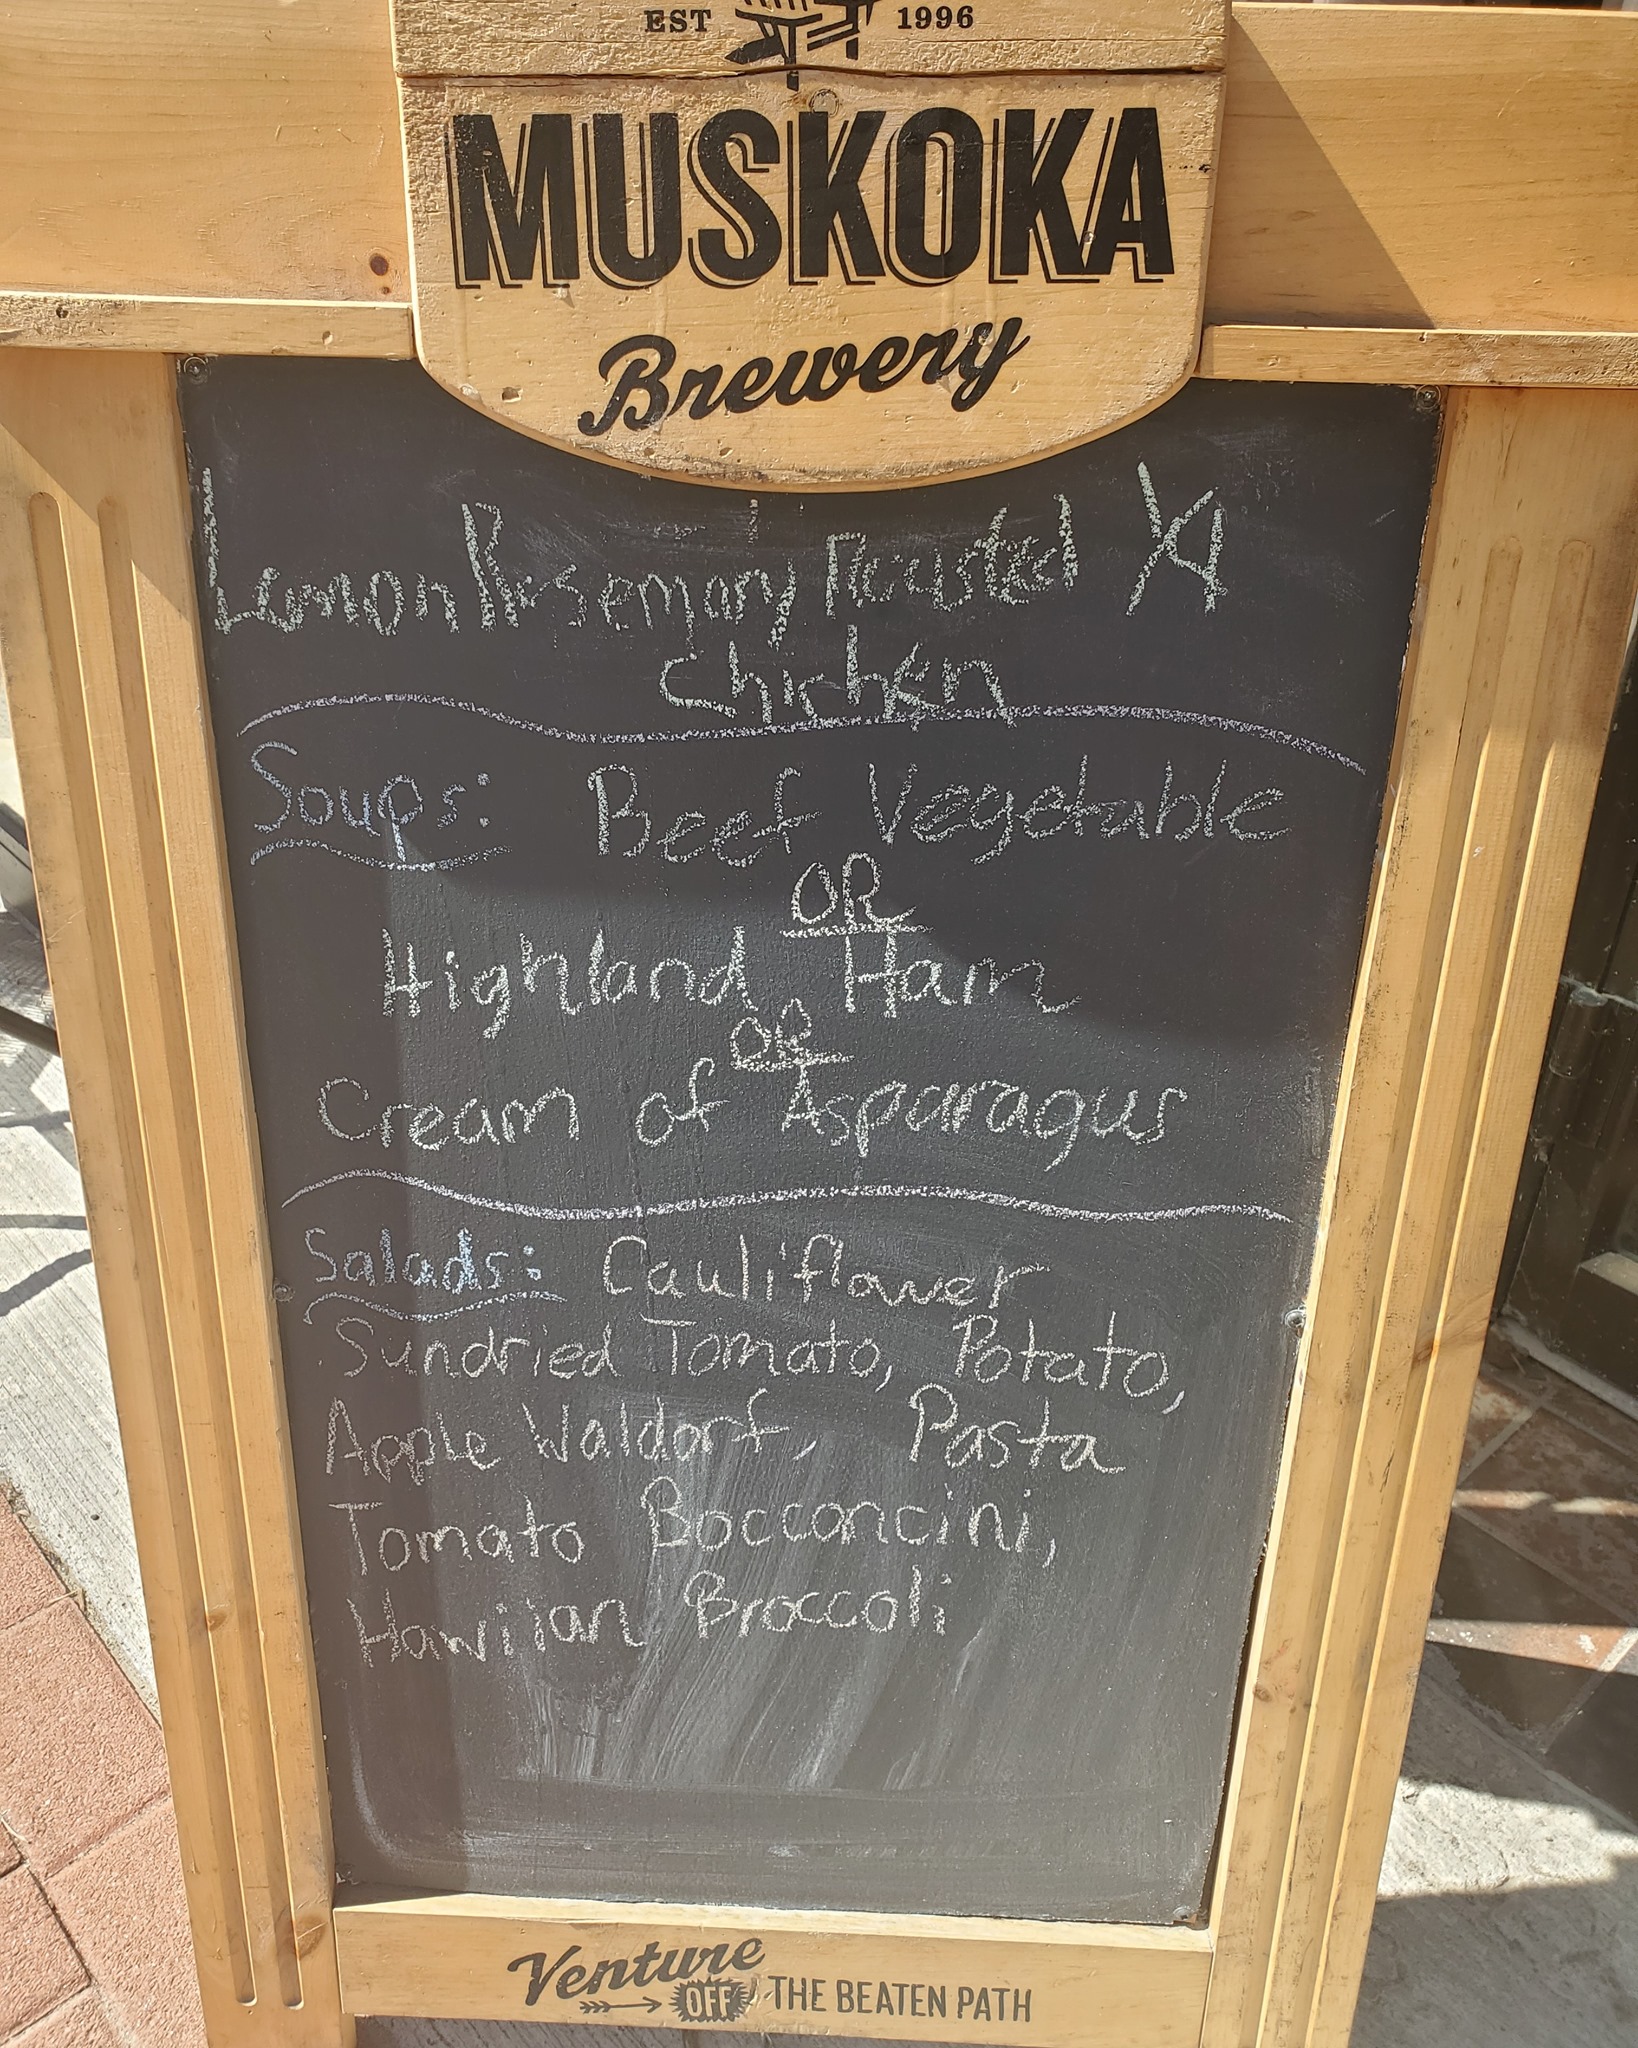 EST 1996
MUSKOKA
Brewery
Lemon Rosemary Roasted 1/4
Chicken
Soups: Beef Vegetable
OR
Highland Ham
OR
Cream of Asparagus
Salads: Cauliflower
Sundried Tomato, Potato,
Apple Waldorf, Pasta
Tomato Bocconcini,
Hawiian Broccoli
Venture OFF THE BEATEN PATH